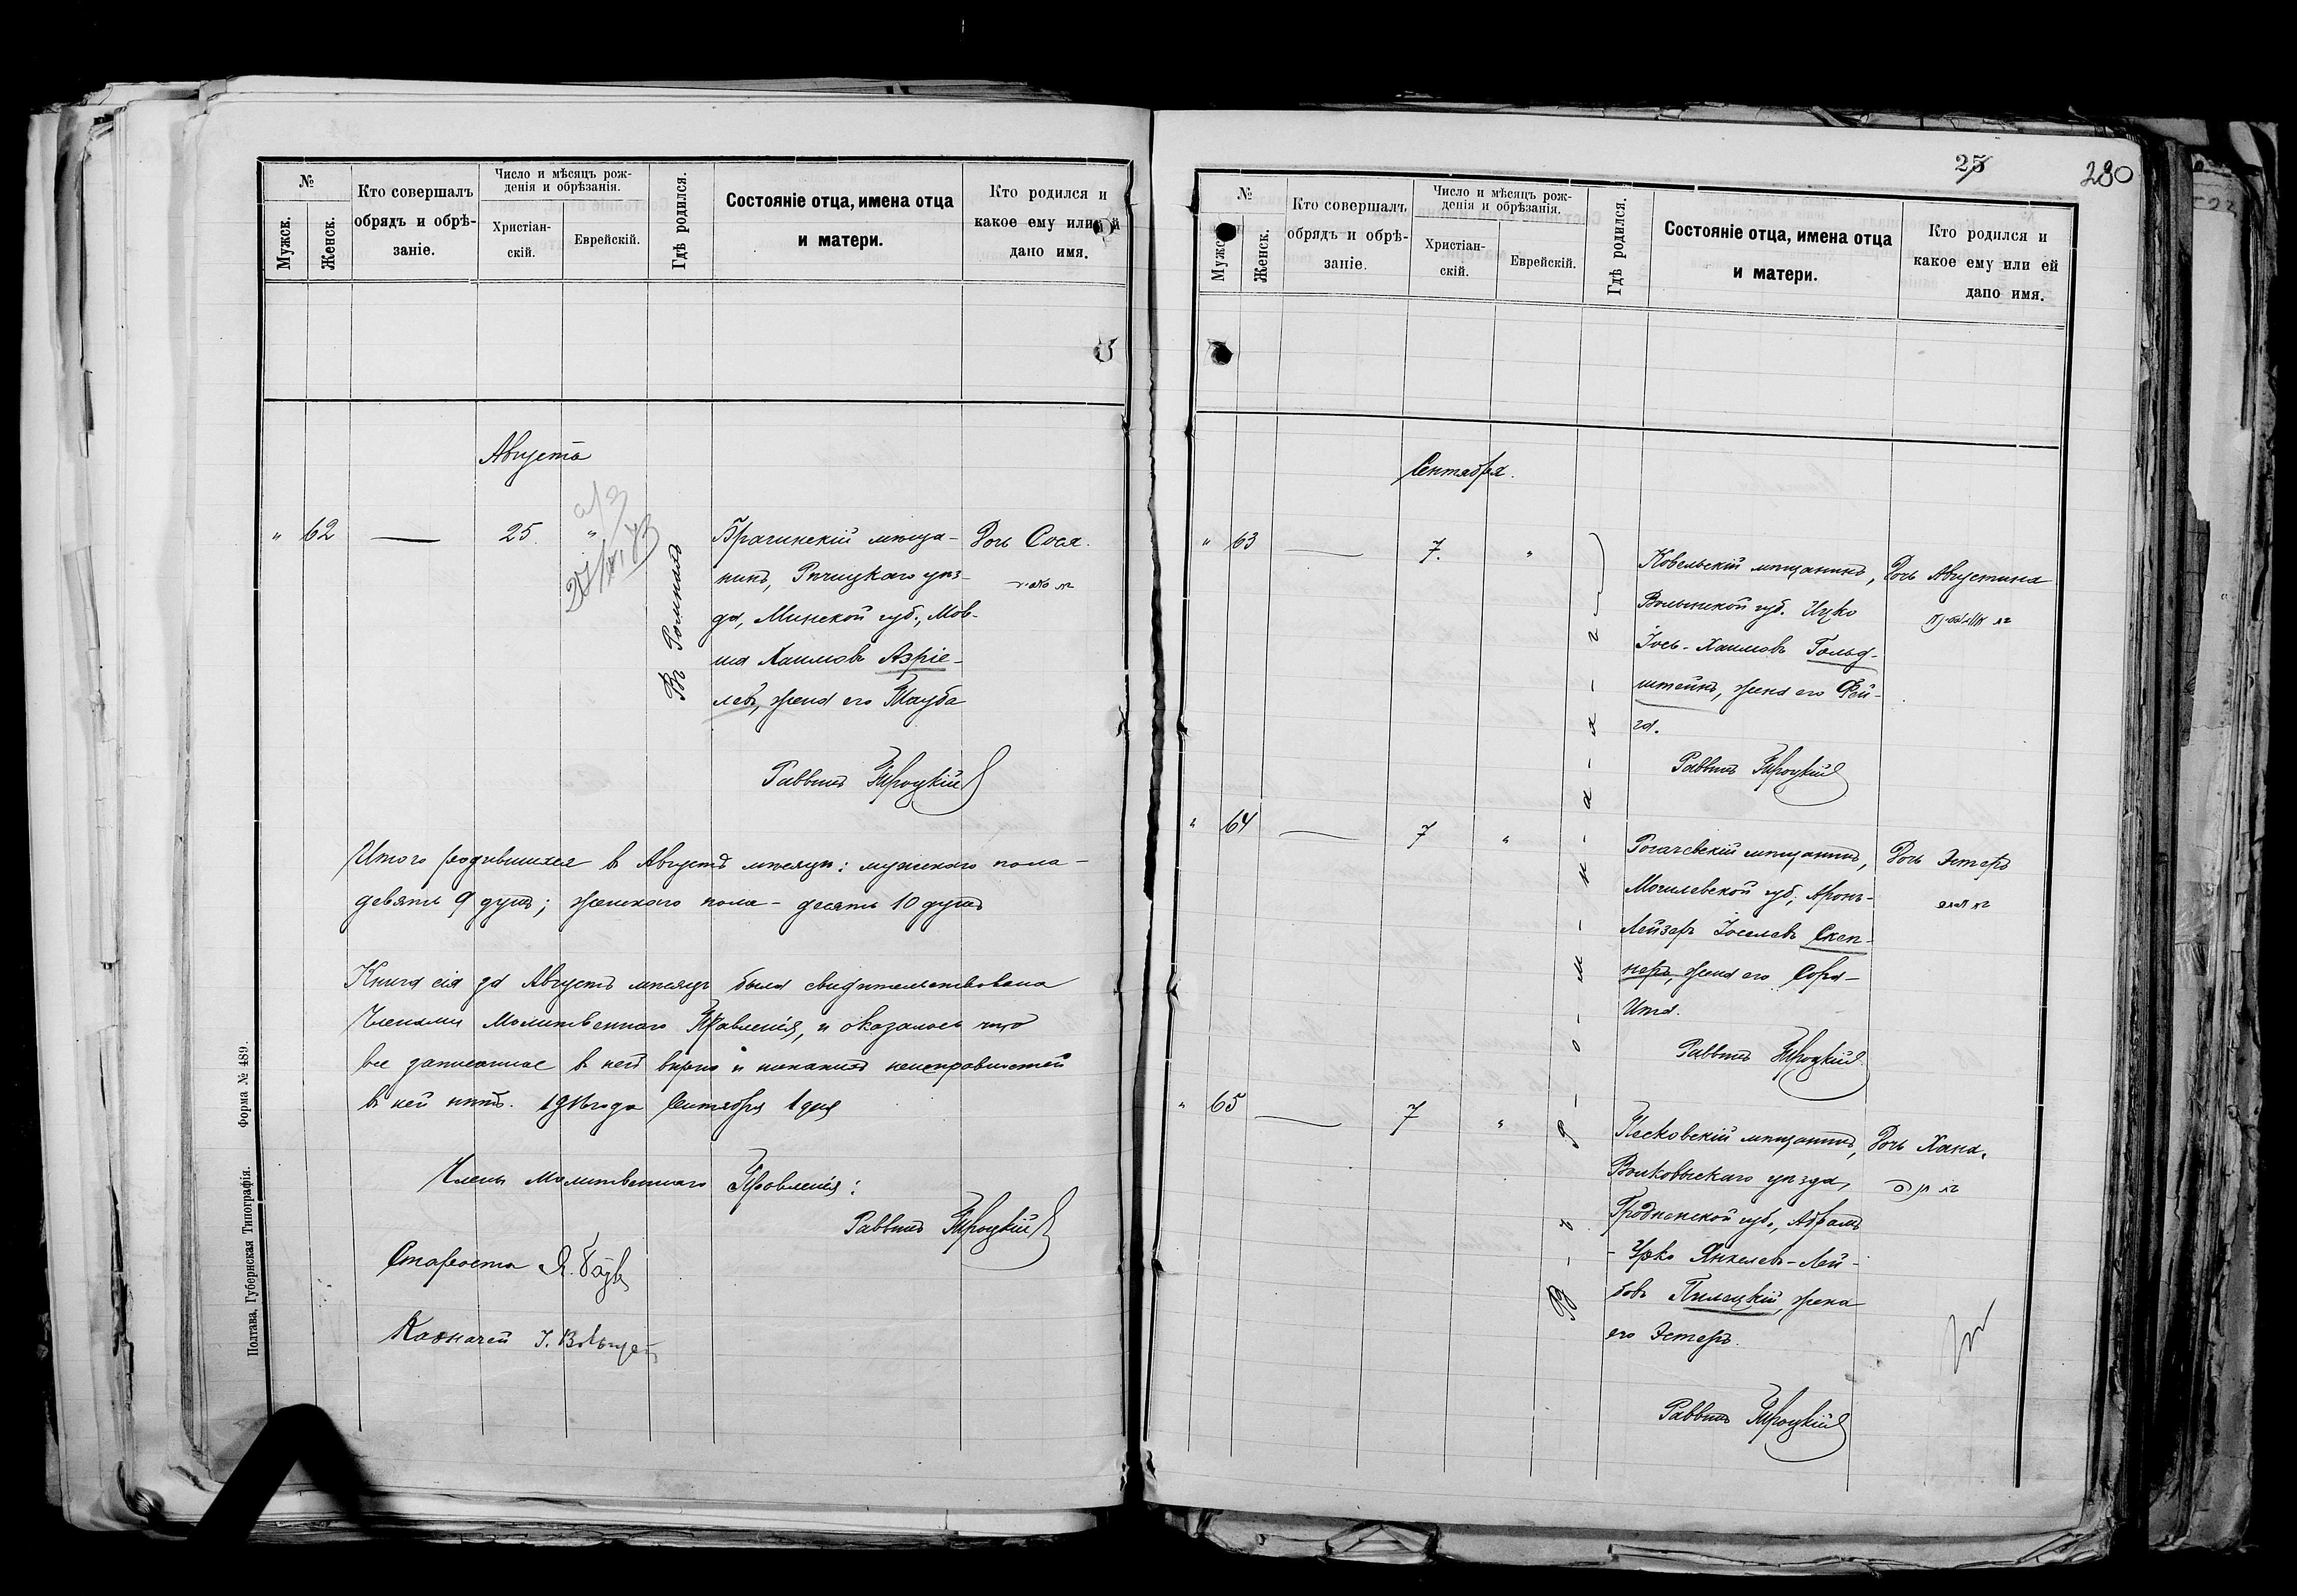 №
Мужск.
Женск.
Кто совершалъ
обрядъ и обрѣ-
заніе.
Число и мѣсяцъ рож-
денія и обрѣзанія.
Христіан-
скій.
Еврейскій.
Гдѣ родился.
Состояніе отца, имена отца
и матери.
Кто родился и
какое ему или
дано имя.
Августа
" 62 — 25. "
Въ Ромнахъ
Брагинскій мѣща-
нинъ, Рѣчицкаго уѣз-
да, Минской губ., Мов-
ша Хаимовъ Азріе-
левъ, жена его Тауба
Дочь Сося.
Раввинъ Троцкій
Итого родившихся в Августѣ мѣсяцѣ: мужскаго пола -
девять 9 душъ; женскаго пола - десять 10 душъ
Книга сія за Августъ мѣсяцъ была свидѣтельствована
Членами Молитвеннаго Правленія, и оказалось что
все записанное в ней вѣрно и никакихъ неисправностей
въ ней нѣтъ. года Сентября 1 дня
Члены Молитвеннаго Правленія:
Раввинъ Троцкій
Староста Я.
Казначей І.
Полтава, Губернская Типографія. Форма № 489.
25
280
№
Мужск
Женск.
Кто совершалъ
обрядъ и обрѣ-
заніе.
Число и мѣсяцъ рож-
денія и обрѣзанія.
Христіан-
скій.
Еврейскій.
Гдѣ родился.
Состояніе отца, имена отца
и матери.
Кто родился и
какое ему или ей
дано имя.
Сентября.
В-ъ Р-о-м-н-а-х-ъ
" 63 — 7. "
Ковельскій мѣщанинъ,
Волынской губ. Ицко
Іось-Хаимовъ Гольд-
штейнъ, жена его Фей-
га.
Дочь Августина
Раввинъ Троцкій
" 64 — 7 "
Рогачевскій мѣщанинъ,
Могилевской губ., Аронъ-
Лейзеръ Іоселевъ Скеп-
неръ, жена его Сора-
Ита.
Дочь Эстеръ
Раввинъ Троцкій
" 65 — 7 "
Песковскій мѣщанинъ,
Волковыскаго уѣзда,
Гродненской губ., Абрамъ
- Ицко Янкелевъ-Лей-
бовъ Пилецкій, жена
его Эстеръ.
Дочь Хана.
Раввинъ Троцкій